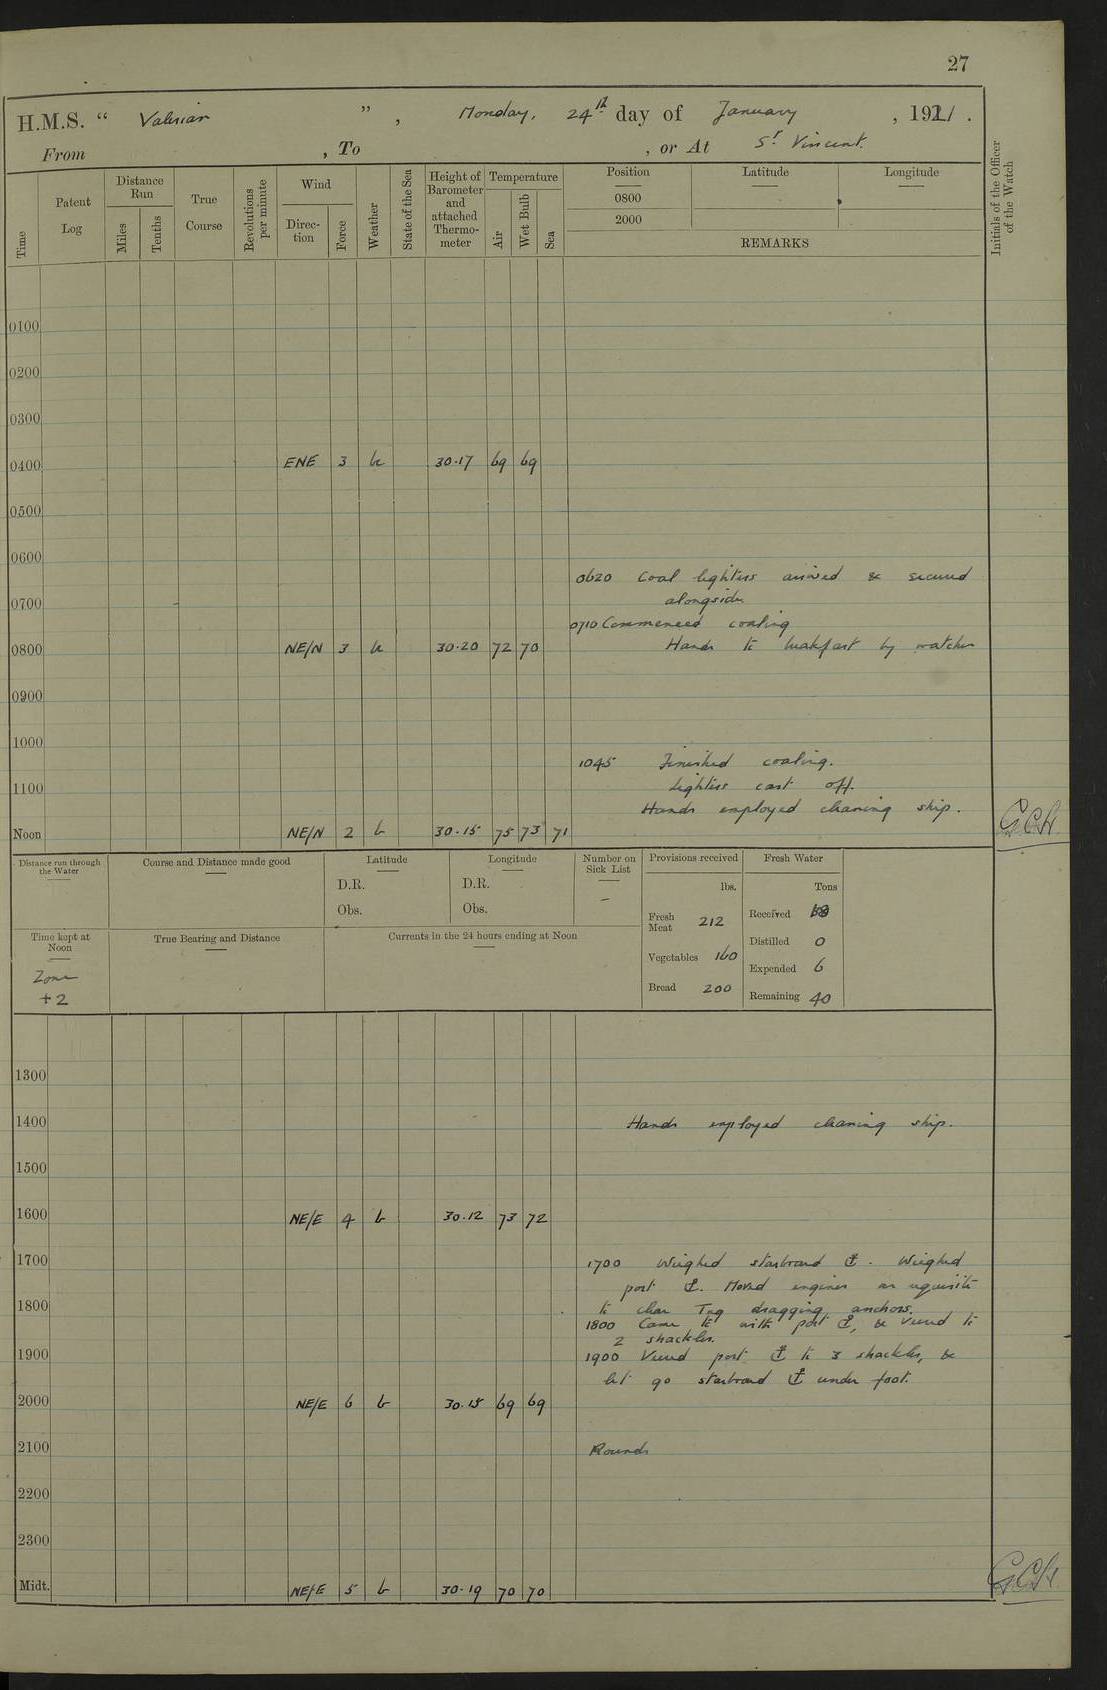 27
H.M.S. “ Valerian ” , Monday, 24th day of January , 1921 .
From , To , or At St Vincent.
Time
Patent Log
Distance Run
Miles
Tenths
True Course
Revolutions per minute
Wind
Direction
Force
Weather
State of the Sea
Height of Barometer and attached Thermometer
Temperature
Air
Wet Bulb
Sea
Position
0800
2000
Latitude
Longitude
REMARKS
Initials of the Officer of the Watch
0100
0200
0300
0400 ENE 3 bc 30·17 69 69
0500
0600
0620 Coal lighters arrived & secured
alongside
0700
0710 Commenced coaling
0800 NE/N 3 bc 30·20 72 70 Hands to breakfast by watches
0900
1000
1045 Finished coaling.
1100 Lighters cast off.
Hands employed cleaning ship.
Noon NE/N 2 b 30·15 75 73 71 GCH
Distance run through the Water
Course and Distance made good
Latitude
D.R.
Obs.
Longitude
D.R.
Obs.
Number on Sick List
–
Provisions received
lbs.
Fresh Meat 212
Vegetables 160
Bread 200
Fresh Water
Tons
Received
Distilled 0
Expended 6
Remaining 40
Time kept at Noon
Zone
+2
True Bearing and Distance
Currents in the 24 hours ending at Noon
1300
1400 Hands employed cleaning ship.
1500
1600 NE/E 4 b 30·12 73 72
1700 1700 Weighed starboard ⚓. Weighed
port ⚓. Moved engines as requisite
1800 to clear Tug dragging anchors.
1800 Came to with port ⚓, & veered to
2 shackles.
1900 1900 Veered port ⚓ to 3 shackles, &
let go starboard ⚓ under foot.
2000 NE/E 6 b 30·15 69 69
2100 Rounds
2200
2300
Midt. NE/E 5 b 30·19 70 70 GCH